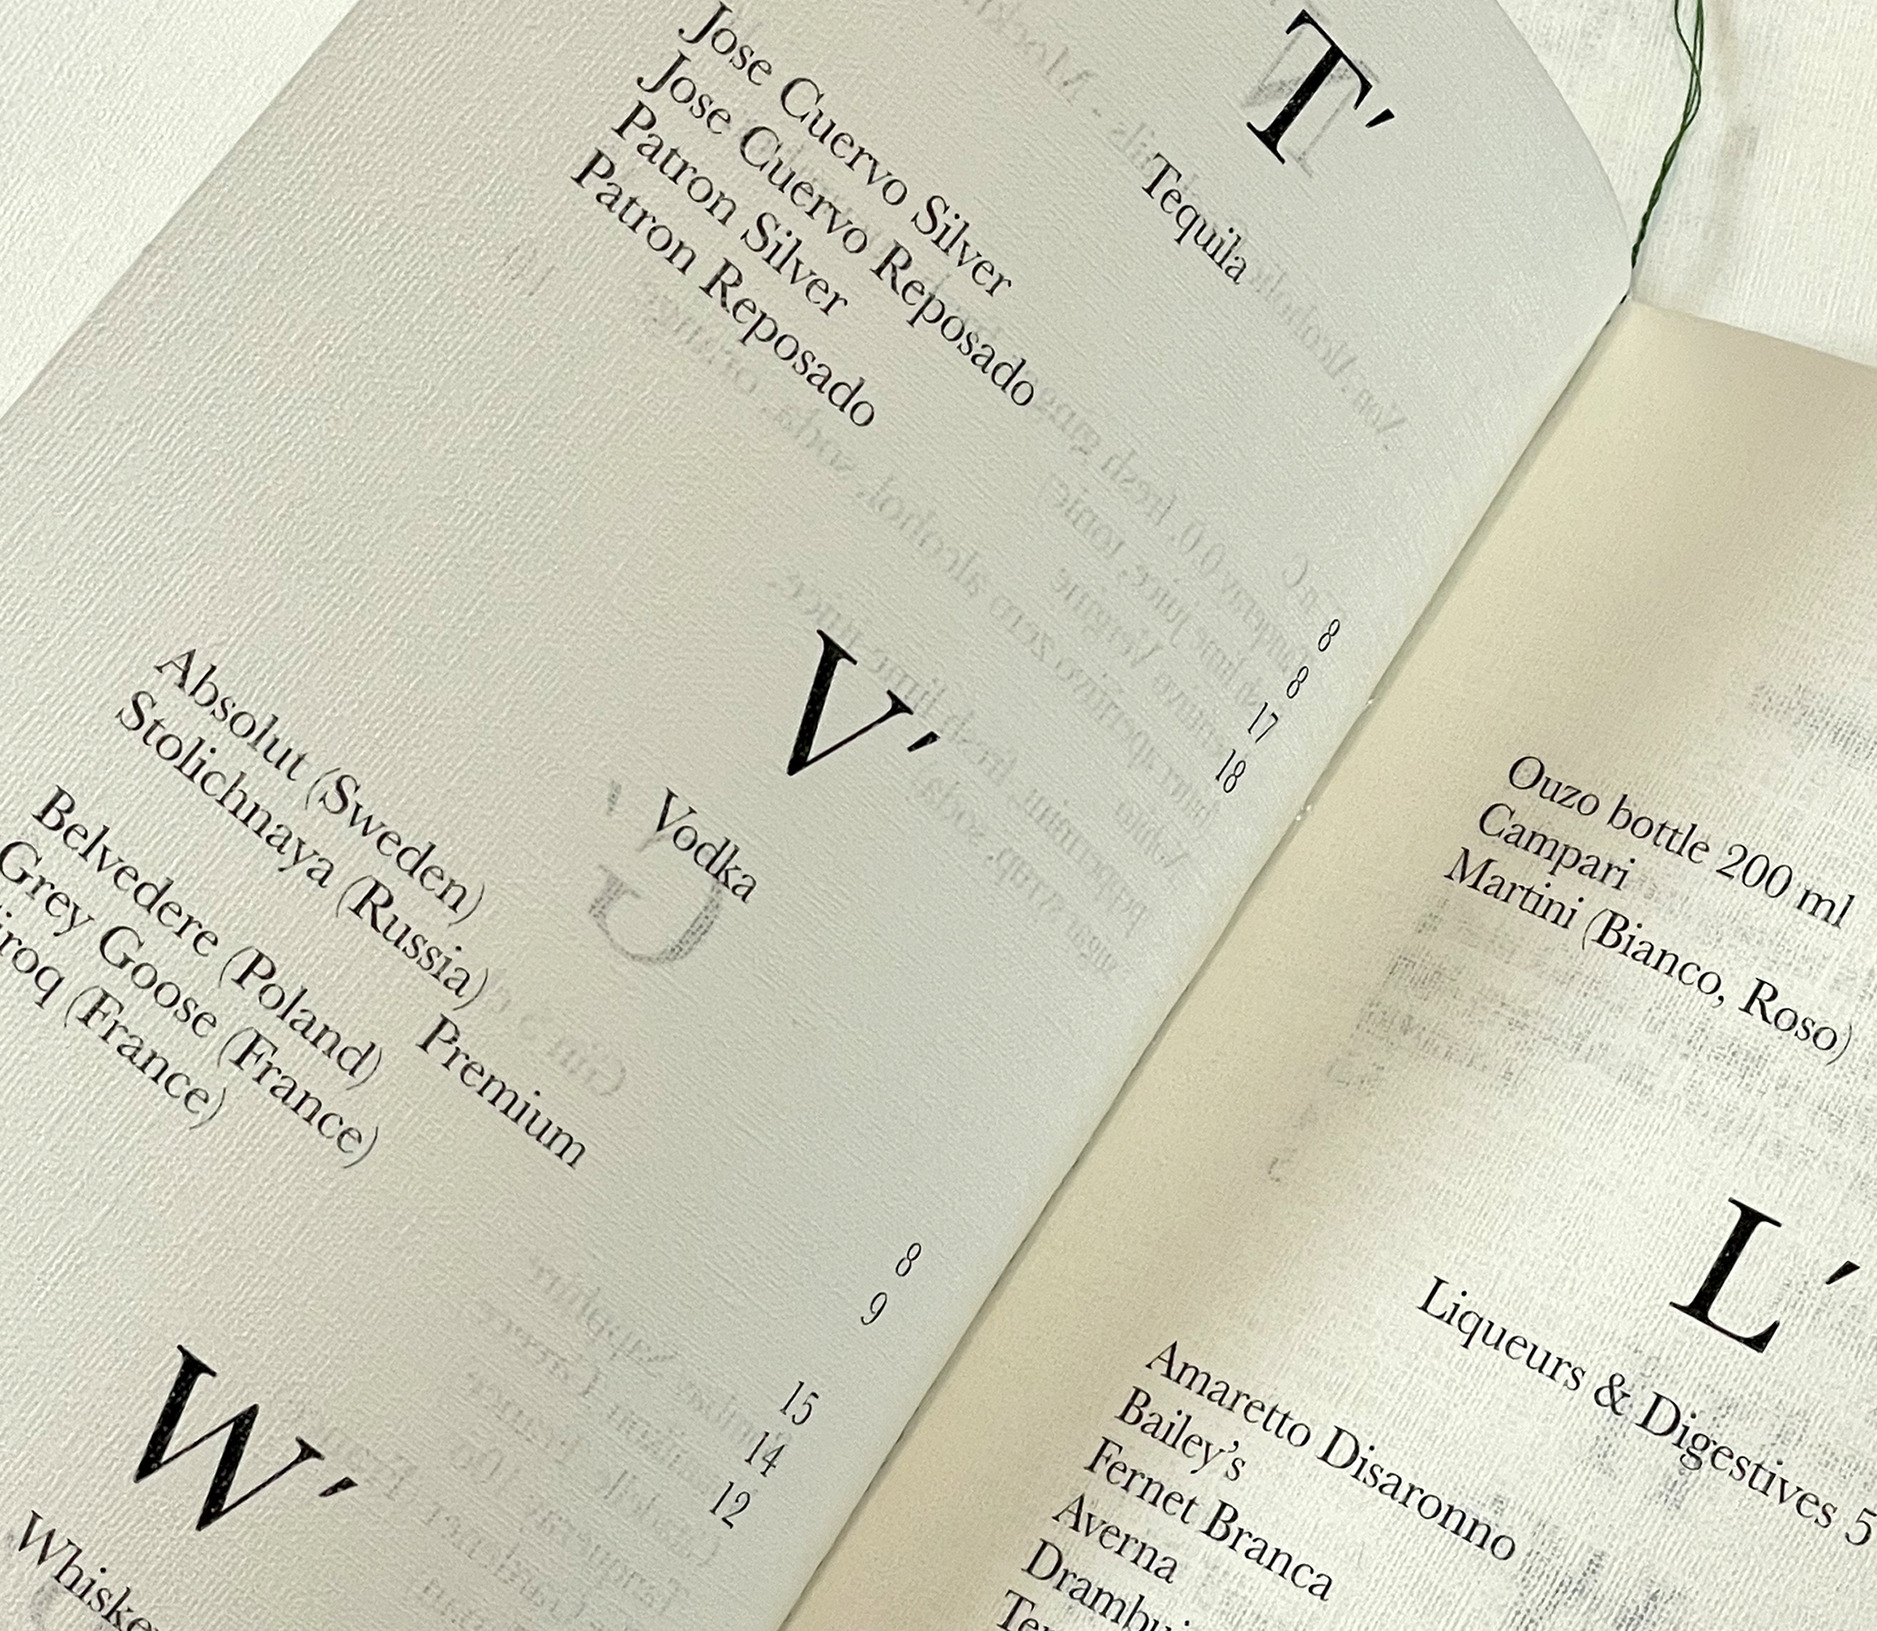 T'
Tequila
Jose Cuervo Silver 8
Jose Cuervo Reposado 8
Patron Silver 17
Patron Reposado 18
V'
Vodka
Absolut (Sweden) 8
Stolichnaya (Russia) 9
Premium
Belvedere (Poland) 15
Grey Goose (France) 14
(France) 12
W'
Ouzo bottle 200 ml
Campari
Martini (Bianco, Roso)
L'
Liqueurs & Digestives 5
Amaretto Disaronno
Bailey's
Fernet Branca
Averna